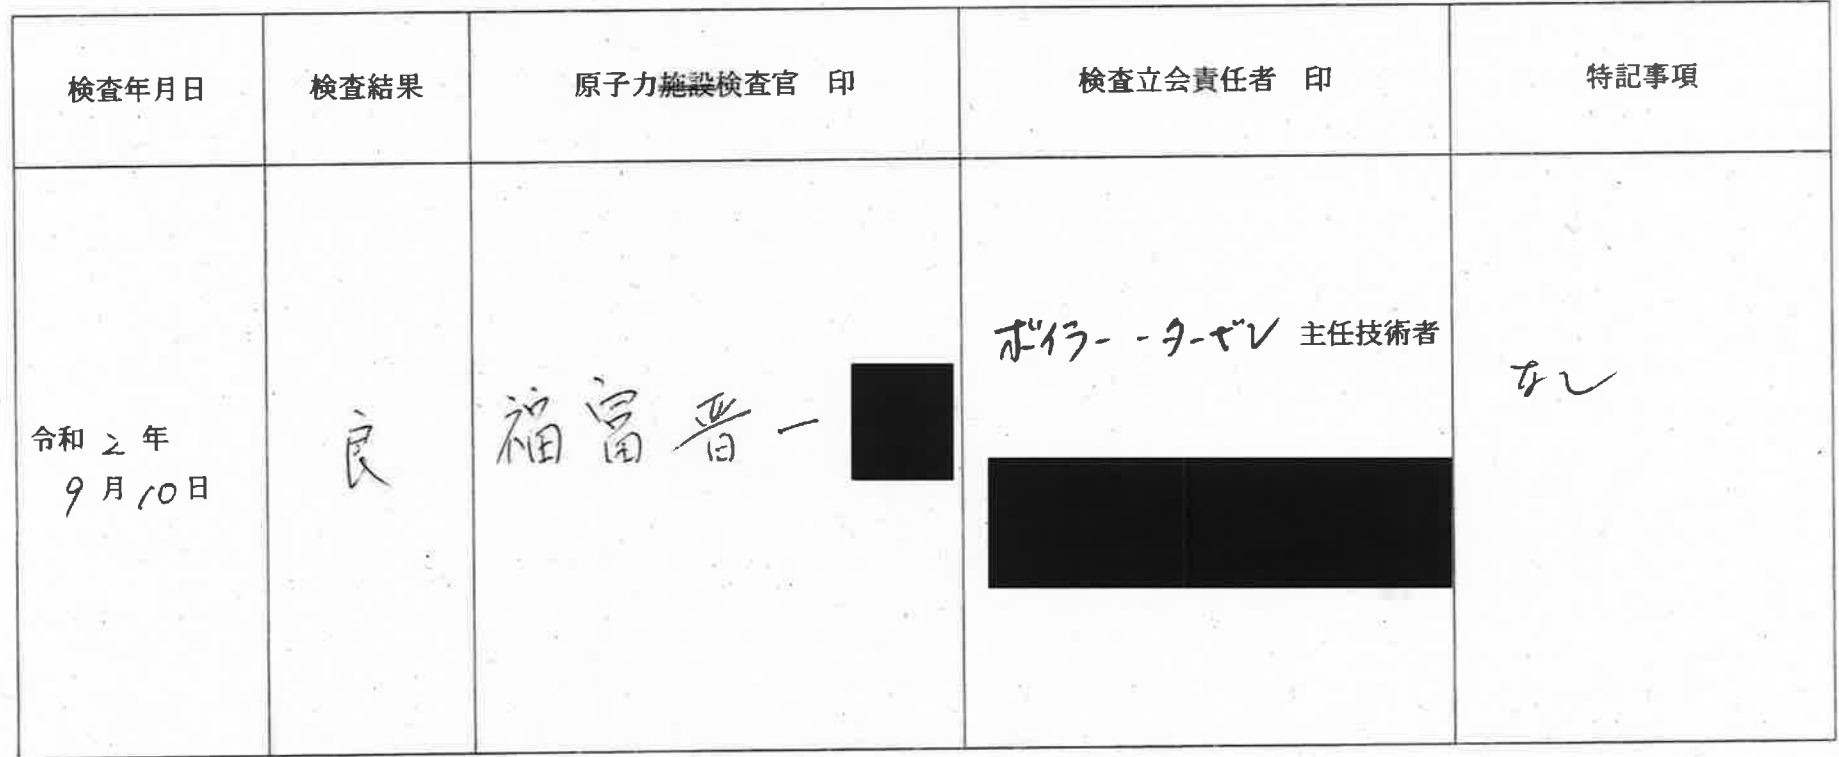 検査年月日
検査結果
原子力施設検査官 印
検査立会責任者 印
特記事項
令和 2 年
9 月 10 日
良
福富晋一
ボイラー・タービン 主任技術者
なし